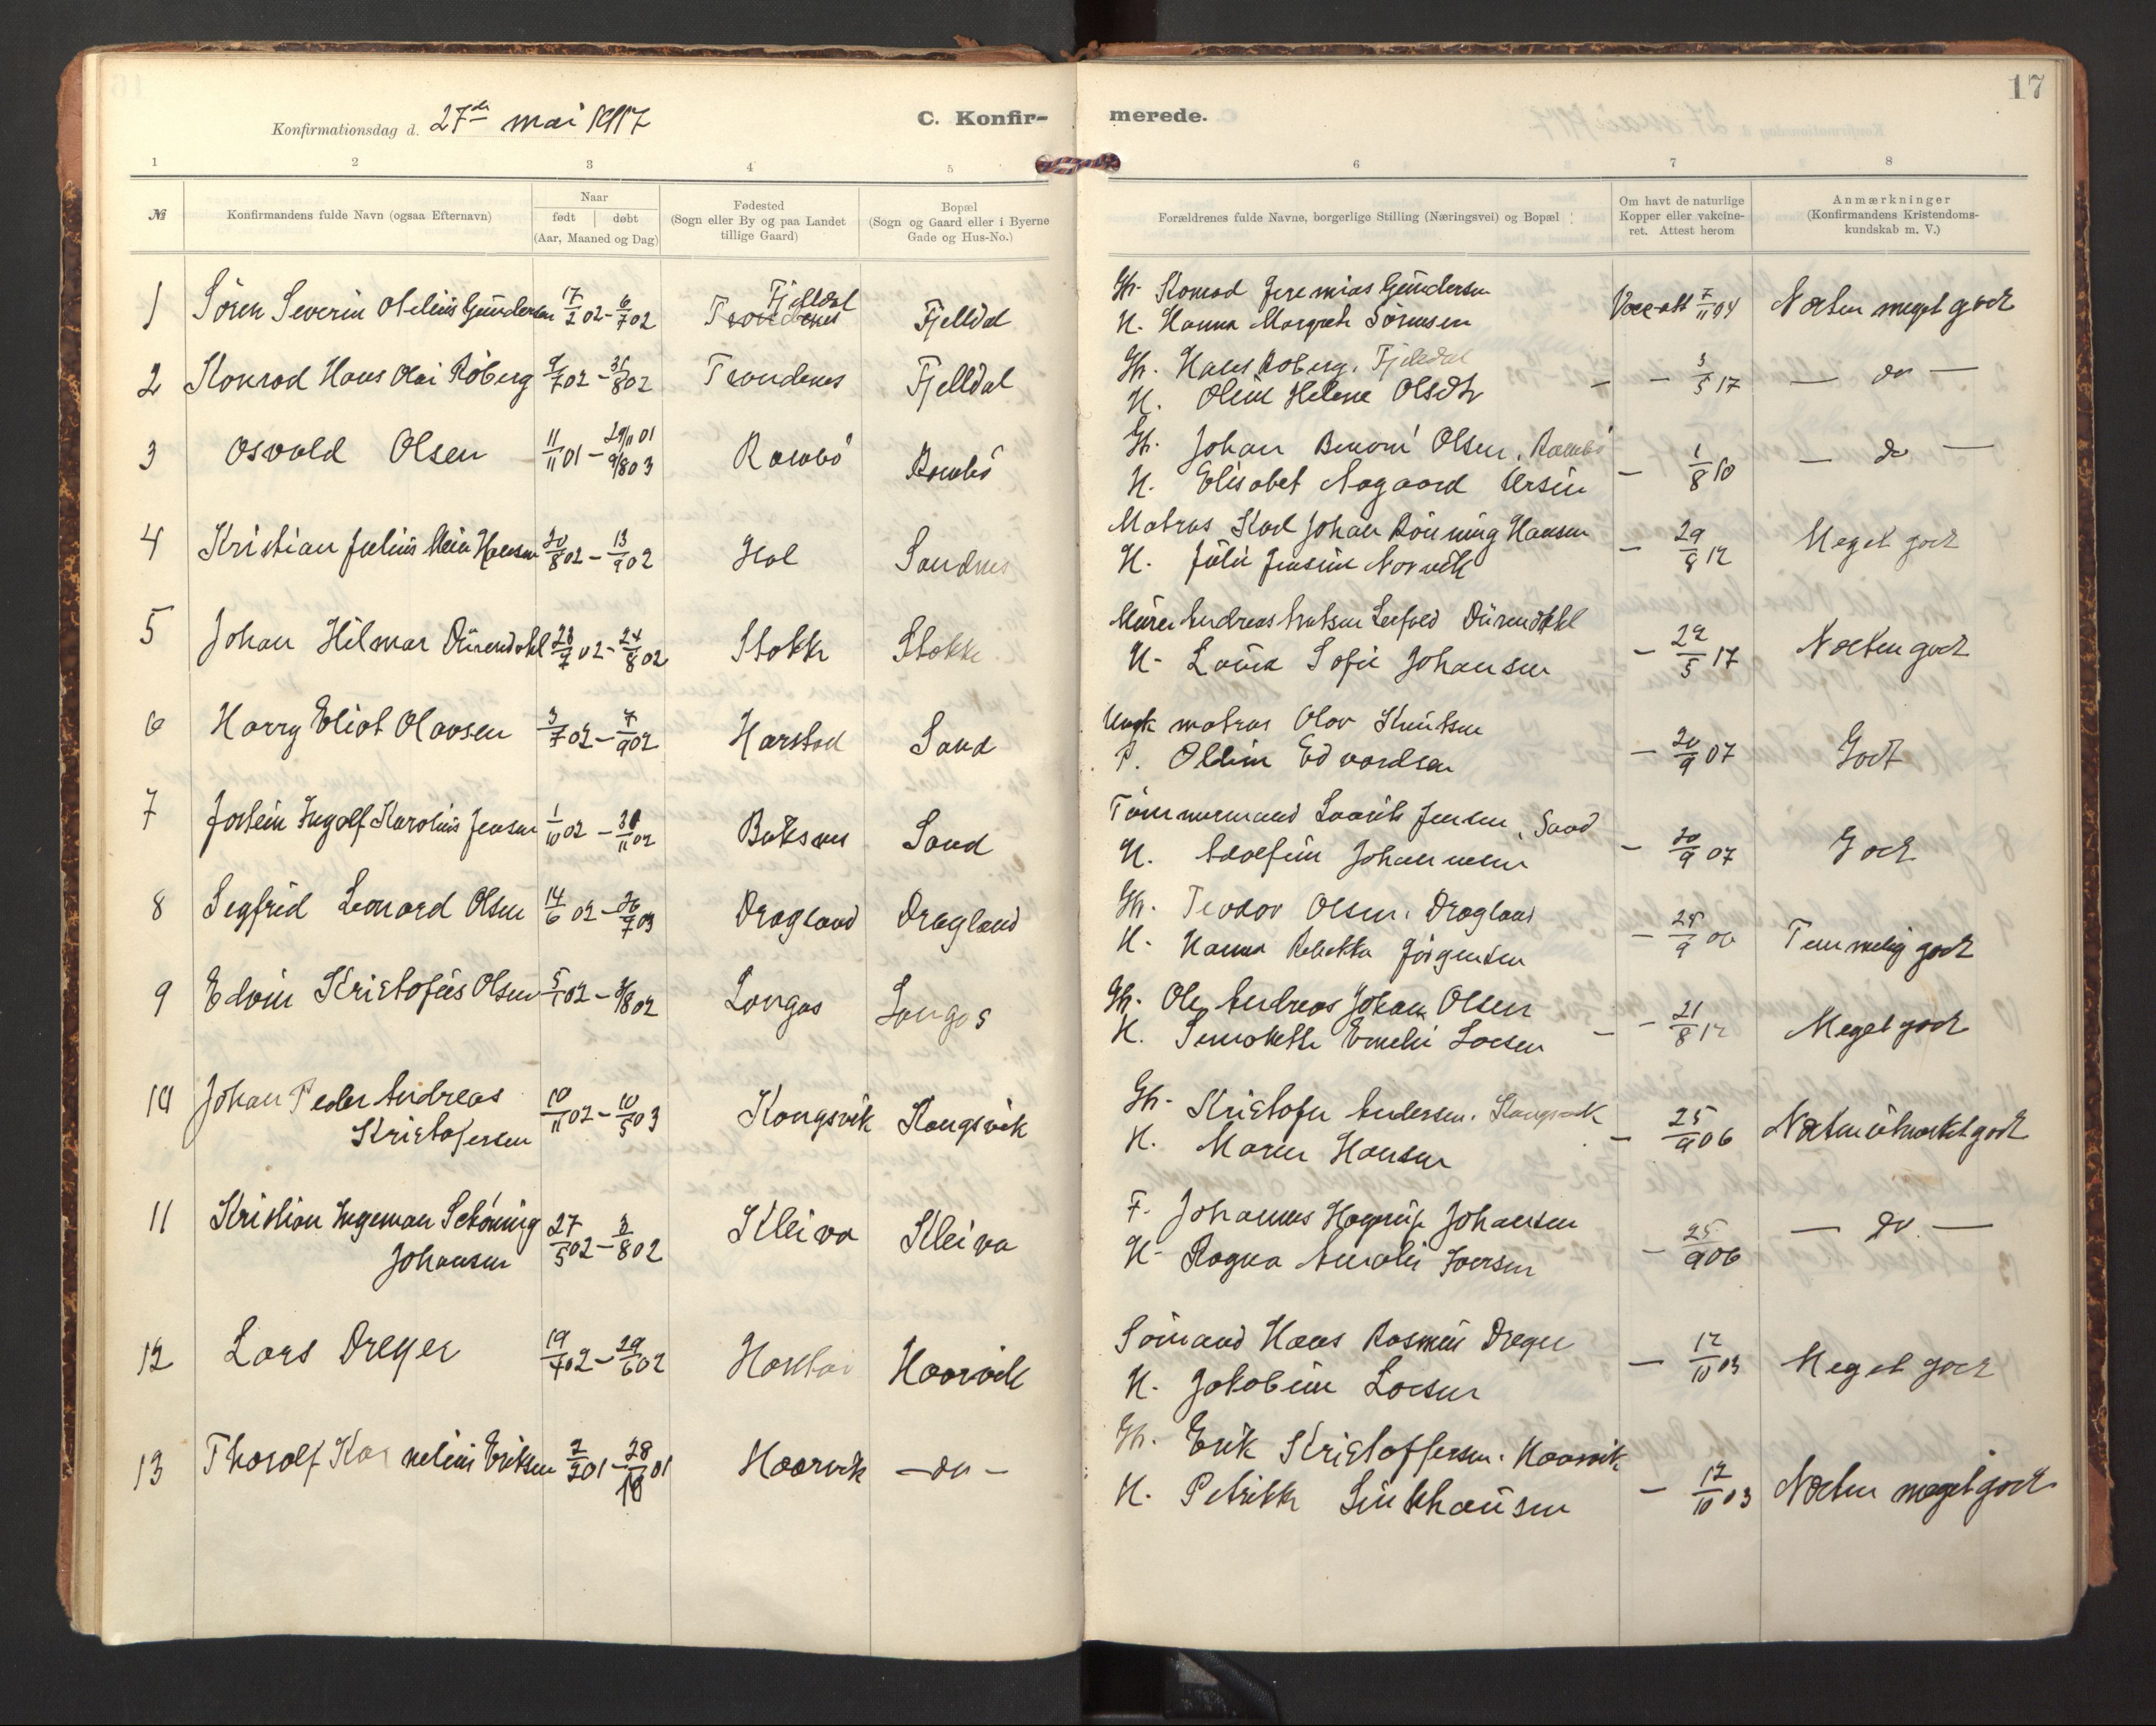 17
Konfirmationsdag d. 27de mai 1917
C. Konfir-
merede.
1 2 3 4 5 6 7 8
№
Konfirmandens fulde Navn (ogsaa Efternavn)
Naar
født døbt
(Aar, Maaned og Dag)
Fødested
(Sogn eller By og paa Landet
tillige Gaard)
Bopæl
(Sogn og Gaard eller i Byerne
Gade og Hus-No.)
Forældrenes fulde Navne, borgerlige Stilling (Næringsvei) og Bopæl
Om havt de naturlige
Kopper eller vakcine-
ret. Attest herom
Anmærkninger
(Konfirmandens Kristendoms-
kundskab m. V.)
1 Sören Severin Gundersen 17/2 02 - 6/7 02 Fjelldal Fjelldal
Gb. Konrad Jeremias Gundersen
H. Hanna Margrete Sörensen
Næsten meget godt
2 Konrad Hans Olai Röberg 9/7 02 - 31/8 02 Trondenes Fjelldal
Gb. Hans Röberg, Fjelldal
H. Oline Helene Olsdtr
- - 3/5 17 - do -
3 Osvald Olsen 11/11 01 - 29/11 01 9/8 03
Gb. Johan Benoni Olsen,
H. Elisabet Aagaard Ursin
- 1/8 10 - do -
4 Kristian Julius Hansen 20/8 02 - 13/9 02 Hol Sandnes
Matros Karl Johan Rönning Hansen
H. Julie Jensine Norvik
- 29/8 12 Meget godt
5 Johan Hilmar Dürendahl 28/7 02 - 24/8 02 Stokke Stokke
Dürendahl
H. Lovise Sofie Johansen
- 29/5 17 Næsten godt
6 Harry Eliot Olavsen 3/7 02 - 7/9 02 Harstad Sand
Ungk matros Olav Knutsen
P. Oldine Edvardsen
- 20/9 07 Godt
7 Jostein Ingolf Karolius Jensen 1/10 02 - 30/11 02 Sand
Tömmermand Laurits Jensen, Sand
H. Adolfine Johannesen
- 20/9 07 Godt
8 Segfrid Leonard Olsen 14/6 02 - 26/7 03 Dragland Dragland
Gb. Teodor Olsen, Dragland
H. Hanna Rebekka Jörgensen
- 25/9 06 Temmelig godt
9 Edvin Kristofius Olsen 5/1 02 - 3/8 02 Langas Langas
Gb. Ole Andreas Johan Olsen
H. Emelie Larsen
- - 21/8 12 Meget godt
10 Johan Peder Andreas
Kristofersen 10/11 02 - 10/5 03 Kongsvik Kongsvik
Gb. Kristofer Andersen. Kongsvik
H. Maren Hansen
- 25/9 06 Næsten utmerket godt
11 Kristian Ingeman Schöning
Johansen 27/5 02 - 3/8 02 Kleiva Kleiva
F. Johannes Hagerup Johansen
H. Ragna Amalie Iversen
- 25/9 06 - do. -
12 Lars Dreyer 19/4 02 - 29/6 02 Harstad Haarvik
Sömand Hans Rasmus Dreyer
H. Jakobine Larsen
- 12/10 03 Meget godt
13 Thorolf Kornelius Eriksen 2/2 01 - 28/10 01 Haarvik - do -
Gb. Erik Kristoffersen. Haarvik
H. Petrikke Linkhausen
- 12/10 03 Næsten meget godt